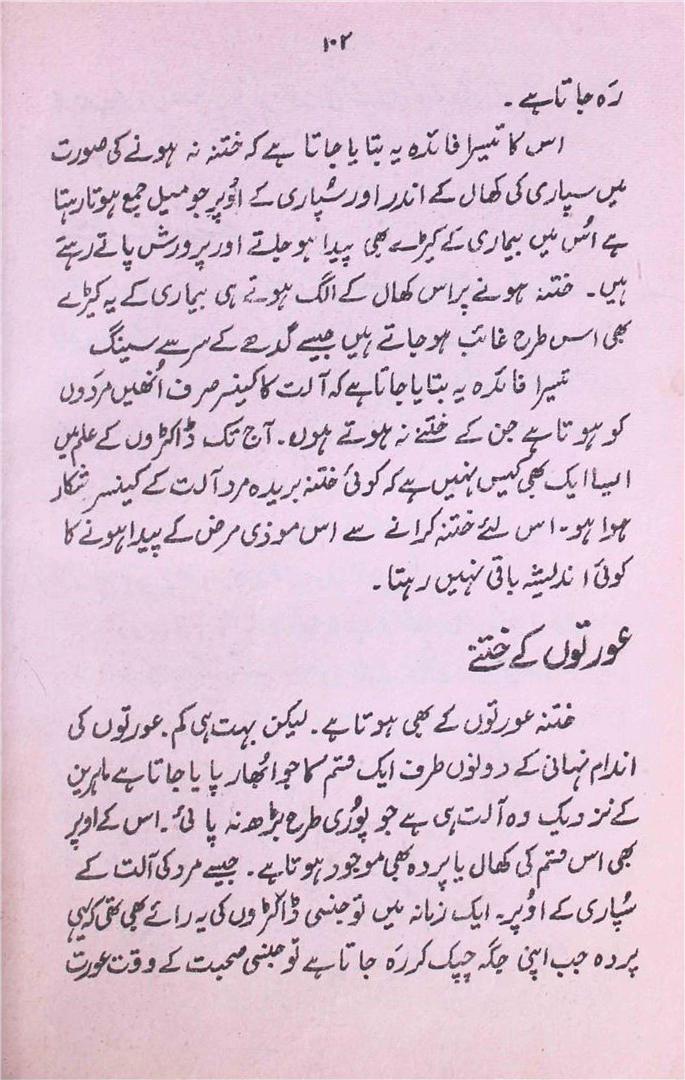 ۱۰۲
رَہ جاتا ہے۔
اس کا تیسرا فائدہ یہ بتایا جاتا ہے کہ ختنہ نہ ہونے کی صورت
میں سپاری کی کھال کے اندر اور سُپاری کے اُوپر جو میل جمع ہوتا رہتا
ہے اُس میں بیماری کے کیڑے بھی پیدا ہو جاتے اور پرورش پاتے رہتے
ہیں۔ ختنہ ہونے پر اس کھال کے الگ ہوتے ہی بیماری کے یہ کیڑے
بھی اس طرح غائب ہو جاتے ہیں جیسے گدھے کے سر سے سینگ
تیسرا فائدہ یہ بتایا جاتا ہے کہ آلت کا کینسر صرف اُنھیں مردوں
کو ہوتا ہے جن کے ختنے نہ ہوتے ہوں۔ آج تک ڈاکٹروں کے علم میں
ایسا ایک بھی کیس نہیں ہے کہ کوئی ختنہ بریدہ مرد آلت کے کینسر شکار
ہوا ہو۔ اس لئے ختنہ کرانے سے اس موذی مرض کے پیدا ہونے کا
کوئی اندیشہ باقی نہیں رہتا۔
عورتوں کے ختنے
ختنہ عورتوں کے بھی ہوتا ہے۔ لیکن بہت ہی کم۔ عورتوں کی
اندام نہانی کے دونوں طرف ایک قسم کا جو اُبھار پایا جاتا ہے ماہرین
کے نزدیک وہ آلت ہی ہے جو پُوری طرح بڑھ نہ پائی۔ اس کے اوپر
بھی اس قسم کی کھال یا پردہ بھی موجود ہوتا ہے۔ جیسے مرد کی آلت کے
سُپاری کے اُوپر۔ ایک زمانہ میں تو جنسی ڈاکٹروں کی یہ رائے بھی تھی کہ یہی
پردہ جب اپنی جگہ چپک کر رَہ جاتا ہے تو جنسی صحبت کے وقت عورت